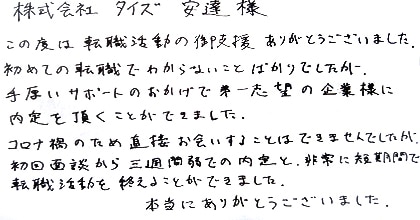 株式会社 タイズ 安達 様
この度は 転職活動の御支援 ありがとうございました。
初めての転職でわからないことばかりでしたが、
手厚いサポートのおかげで第一志望の企業様に
内定を頂くことができました。
コロナ禍のため直接お会いすることはできませんでしたが、
初回面談から三週間弱での内定と、非常に短期間で
転職活動を終えることができました。
本当にありがとうございました。